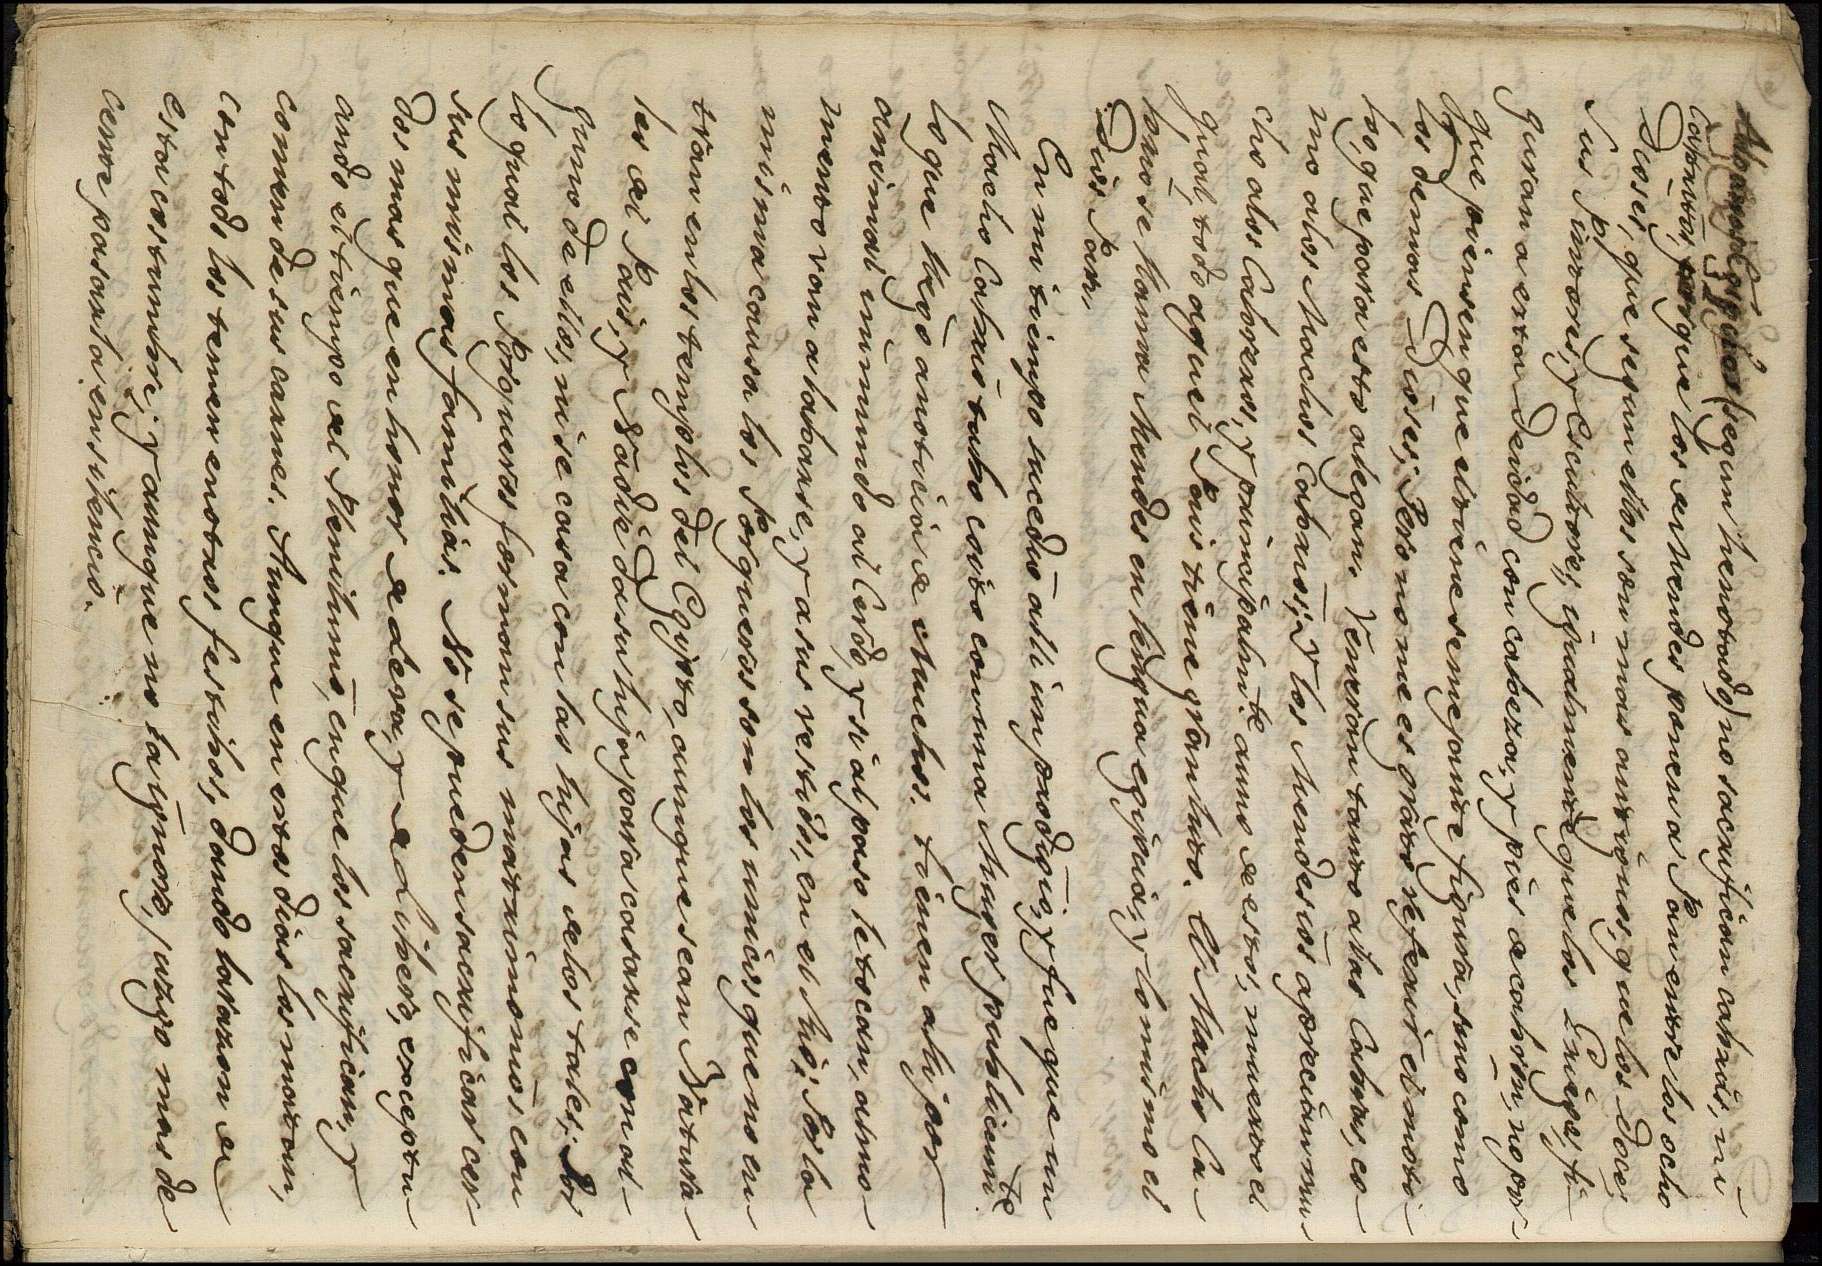 Algunos Egipcios (segun herotodo) no sacrifican cabras, ni
Cabrones, porque los de Mendes ponen a Pan entre los ocho
Dioses, que segun ellos son mas antiguos, que los Doce;
Sus Pintores, y Escultores, igualmente que los Griegos, fi-
guran a esta Deidad con cabeza, y pies de cabron, no por-
que piensen que tiene semejante figura, sino como
los demas Dioses; Pero no me es grato referir el moti-
bo, que para esto alegan. Veneran tanto a las Cabras, co-
mo a los Machos Cabrios; Y los Mendesios aprecian mu-
cho a los Cabreros, y principalmte. a uno de estos, muerto el
qual, todo aquel Pais tiene gran luto. El Macho Ca-
brio se llama Mendes en lengua egipcia, y lo mismo el
Dios Pan.
En mi tiempo sucedio alli un prodigio, y fue que un
Macho Cabrio tubo coito con una Muger publicamte.
lo que llego a noticia de muchos. tienen alli por
animal inmundo al Cerdo, y si al paso le tocan, a lo
menos van a labarse, y a sus vestidos, en el Rio; Por la
misma causa los Porqueros son los unicos que no en-
tran en los templos del Egypto, aunque sean Natura-
les del Pais, y Nadie da su hija para casarse con al-
guno de ellos, ni se casa con las hijas de los tales; Por
lo qual los Porqueros forman sus matrimonios con
sus mismas familias. No se pueden sacrificar cer-
dos mas que en honor de la luna, y de Libero, exceptu-
ando el tiempo del Plenilunio, en que los sacrifican, y
comen de sus carnes. Aunque en estos dias los matan,
con todo los temen en otros festibos, dando la razon de
esta costumbre, y aunque no la ignoro, juzgo mas de-
cente pasarla en silencio.